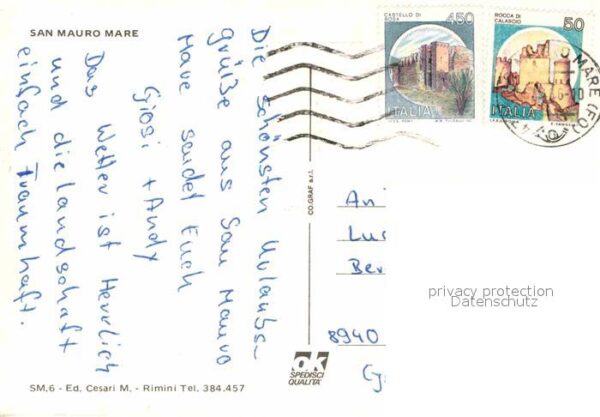 SAN MAURO MARE
Die schönsten Urlaubs-
grüße aus San Mauro
Mare sendet Euch
Giosi + Andy
Das Wetter ist Herrlich
und die Landschaft
einfach Traumhaft.
SM.6 - Ed. Cesari M. - Rimini Tel. 384.457
CO.GRAF s.r.l.
ok
SPEDISCI
QUALITÀ
CASTELLO DI
BOSA
450
ITALIA
ROCCA DI
CALASCIO
50
ITALIA
MARE (FO)
An
Lu
Be
8940
privacy protection
Datenschutz